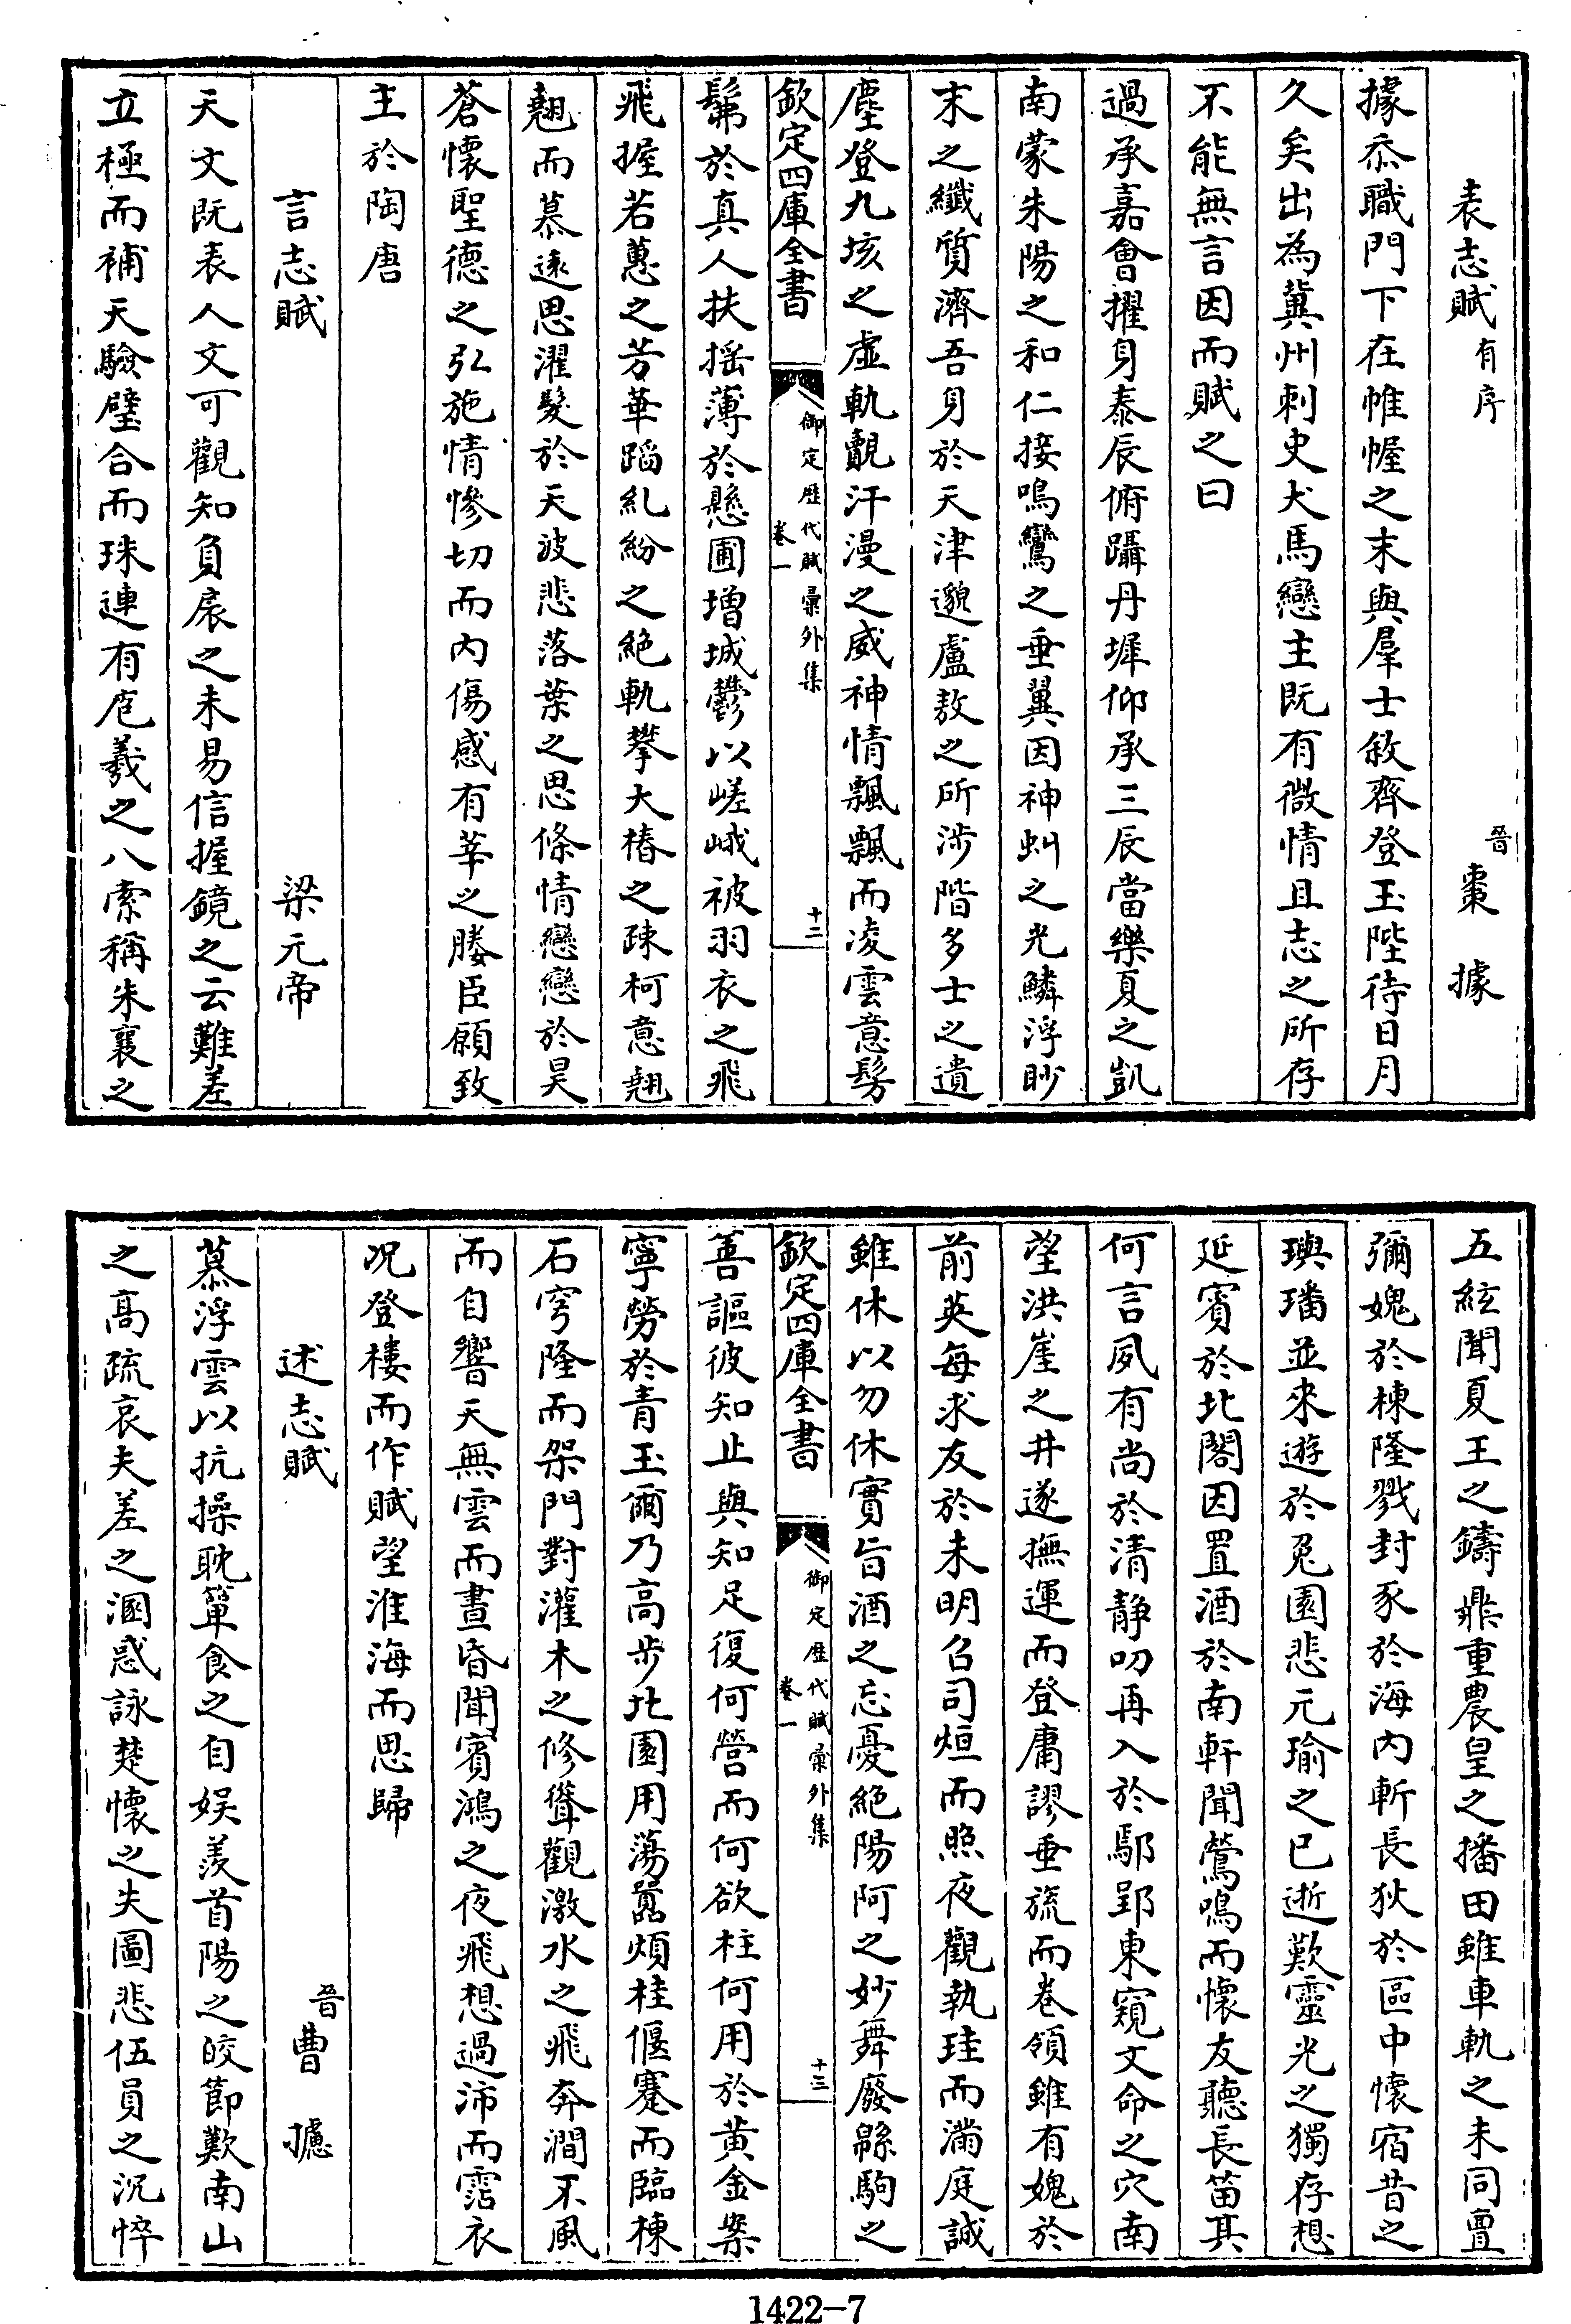 表志賦有序 晉棗據
據忝職門下在帷幄之末與羣士敘齊登玉陛侍日月
久矣出為冀州刺史犬馬戀主既有微情且志之所存
不能無言因而賦之曰
過承嘉會擢身泰辰俯躡丹墀仰承三辰當樂夏之凱
南蒙朱陽之和仁接鳴鸞之垂翼因神虯之光鱗浮眇
末之纖質濟吾身於天津邈盧敖之所涉階多士之遺
塵登九垓之虛軌覿汗漫之威神情飄飄而凌雲意髣
欽定四庫全書 御定歷代賦彙外集 卷一 十二
髴於真人扶搖薄於懸圃增城鬱以嵯峨被羽衣之飛
飛握若蕙之芳華蹈糺紛之絕軌攀大椿之疎柯意翹
翹而慕遠思濯髮於天波悲落葉之思條情戀戀於昊
蒼懷聖德之弘施情慘切而內傷感有莘之媵臣願致
主於陶唐
言志賦 梁元帝
天文既表人文可觀知負扆之未易信握鏡之云難差
立極而補天驗璧合而珠連有庖羲之八索稱朱襄之
五絃聞夏王之鑄鼎重農皇之播田雖車軌之未同亶
彌媿於棟隆戮封豕於海內斬長狄於區中懷宿昔之
璵璠並來遊於兎園悲元瑜之已逝歎靈光之獨存想
延賓於北閣因置酒於南軒聞鶯鳴而懷友聽長笛其
何言夙有尚於清靜叨再入於鄢郢東窺文命之穴南
望洪崖之井遂撫運而登庸謬垂旒而卷領雖有媿於
前英每求友於未明召司烜而照夜觀執珪而滿庭誠
雖休以勿休實旨酒之忘憂絕陽阿之妙舞廢緜駒之
欽定四庫全書 御定歷代賦彙外集 卷一 十三
善謳彼知止與知足復何營而何欲柱何用於黃金案
寧勞於青玉爾乃高步北園用蕩囂煩桂偃蹇而臨棟
石穹隆而架門對灌木之修聳觀激水之飛奔澗不風
而自響天無雲而晝昏聞賓鴻之夜飛想過沛而霑衣
況登樓而作賦望淮海而思歸
述志賦 晉曹攄
慕浮雲以抗操耽簞食之自娛羨首陽之皎節歎南山
之高疏哀夫差之溷惑詠楚懷之失圖悲伍員之沉悴
1422-7